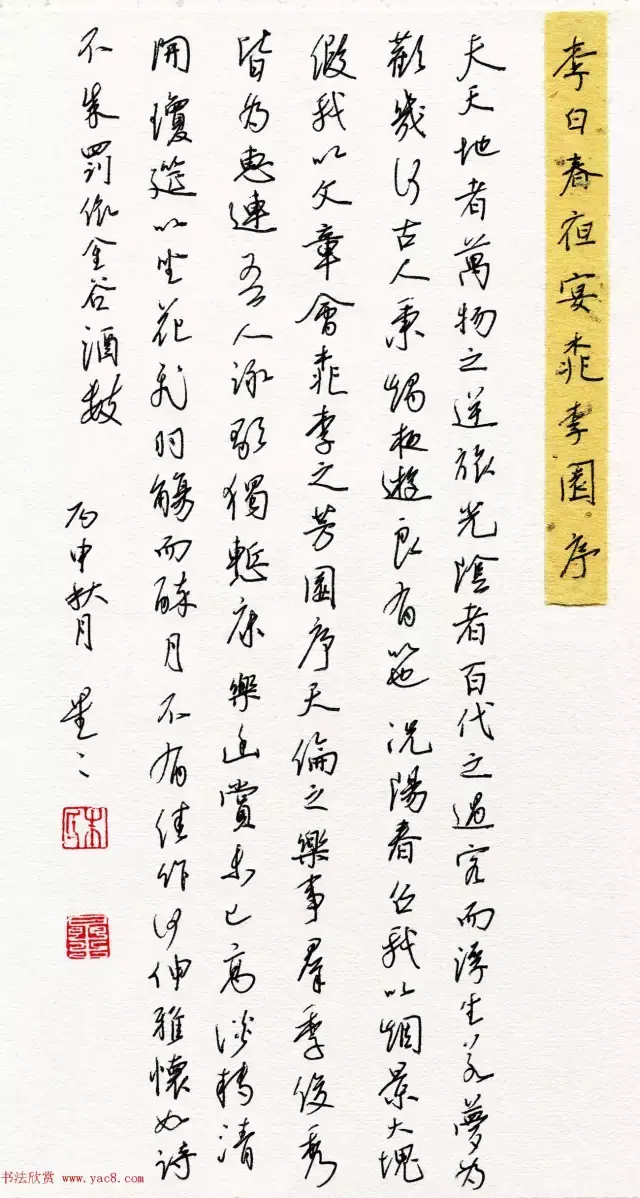 李白春夜宴桃李園序
夫天地者萬物之逆旅光陰者百代之過客而浮生若夢為
歡幾何古人秉燭夜遊良有以也況陽春召我以烟景大塊
假我以文章會桃李之芳園序天倫之樂事羣季俊秀
皆為惠連吾人詠歌獨慙康樂幽賞未已高談轉清
開瓊筵以坐花飛羽觴而醉月不有佳作何伸雅懷如詩
不成罰依金谷酒數
丙申秋月
书法欣赏 www.yac8.com